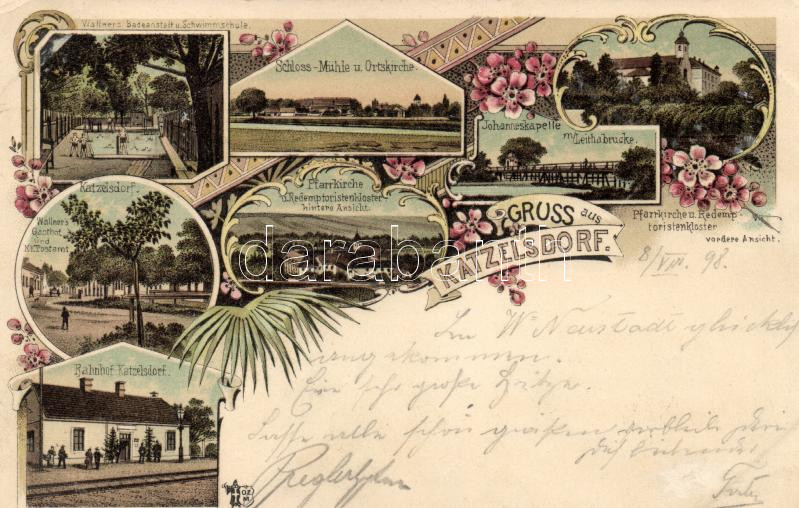 Wallners Badeanstalt u. Schwimmschule.
Schloss-Mühle u. Ortskirche.
Johanneskapelle
m/Leithabrücke.
Pfarrkirche u. Redemp-
toristenkloster
vordere Ansicht.
Katzelsdorf.
Wallners
Gasthof
und
K.K. Postamt
Pfarrkirche
u. Redemptoristenkloster
hintere Ansicht.
GRUSS aus
KATZELSDORF.
darabanth.com
8/VIII. 98.
In W. Neustadt glücklich
angekommen.
Eine sehr große Hitze.
Lasse alle schön grüßen verbleibe
Bahnhof Katzelsdorf.